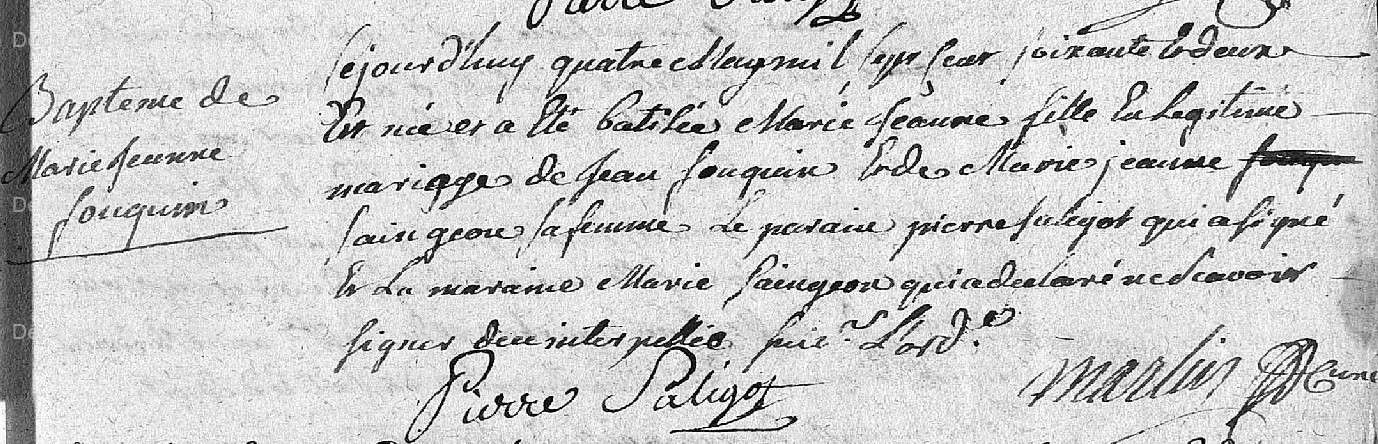 Cejourd'huy quatre May mil sept cent soixante et deux
Est née et a Eté batisée Marie jeanne fille En legitime
mariage de jean fouquin Et de Marie jeanne
saingeon sa femme Le parain pierre saligot qui a signé
Et La maraine Marie saingeon qui a declaré ne scavoir
signer de ce interpellée suiv.t L'ord.ce
Bapteme de
Marie jeanne
fouquin
Pierre Saligot
martin Curé